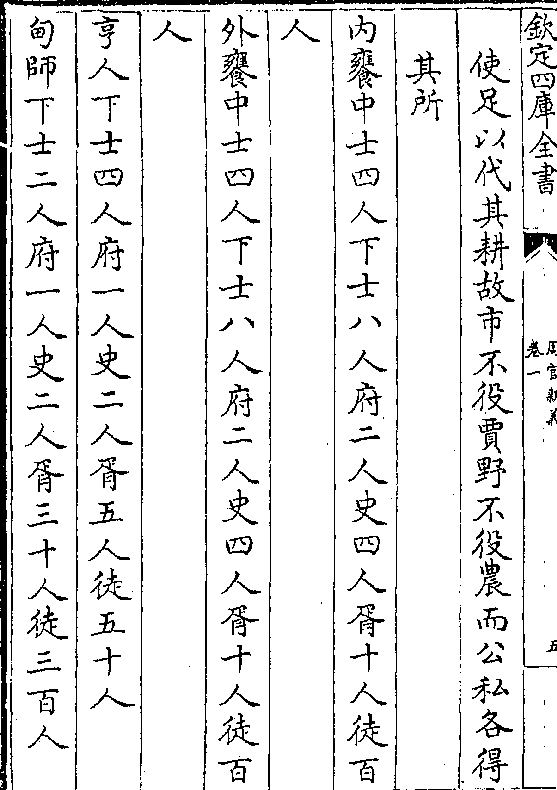 欽定四庫全書
周官新義
卷一
五
使足以代其耕故市不役賈野不役農而公私各得
其所
内饔中士四人下士八人府二人史四人胥十人徒百
人
外饔中士四人下士八人府二人史四人胥十人徒百
人
亨人下士四人府一人史二人胥五人徒五十人
甸師下士二人府一人史二人胥三十人徒三百人